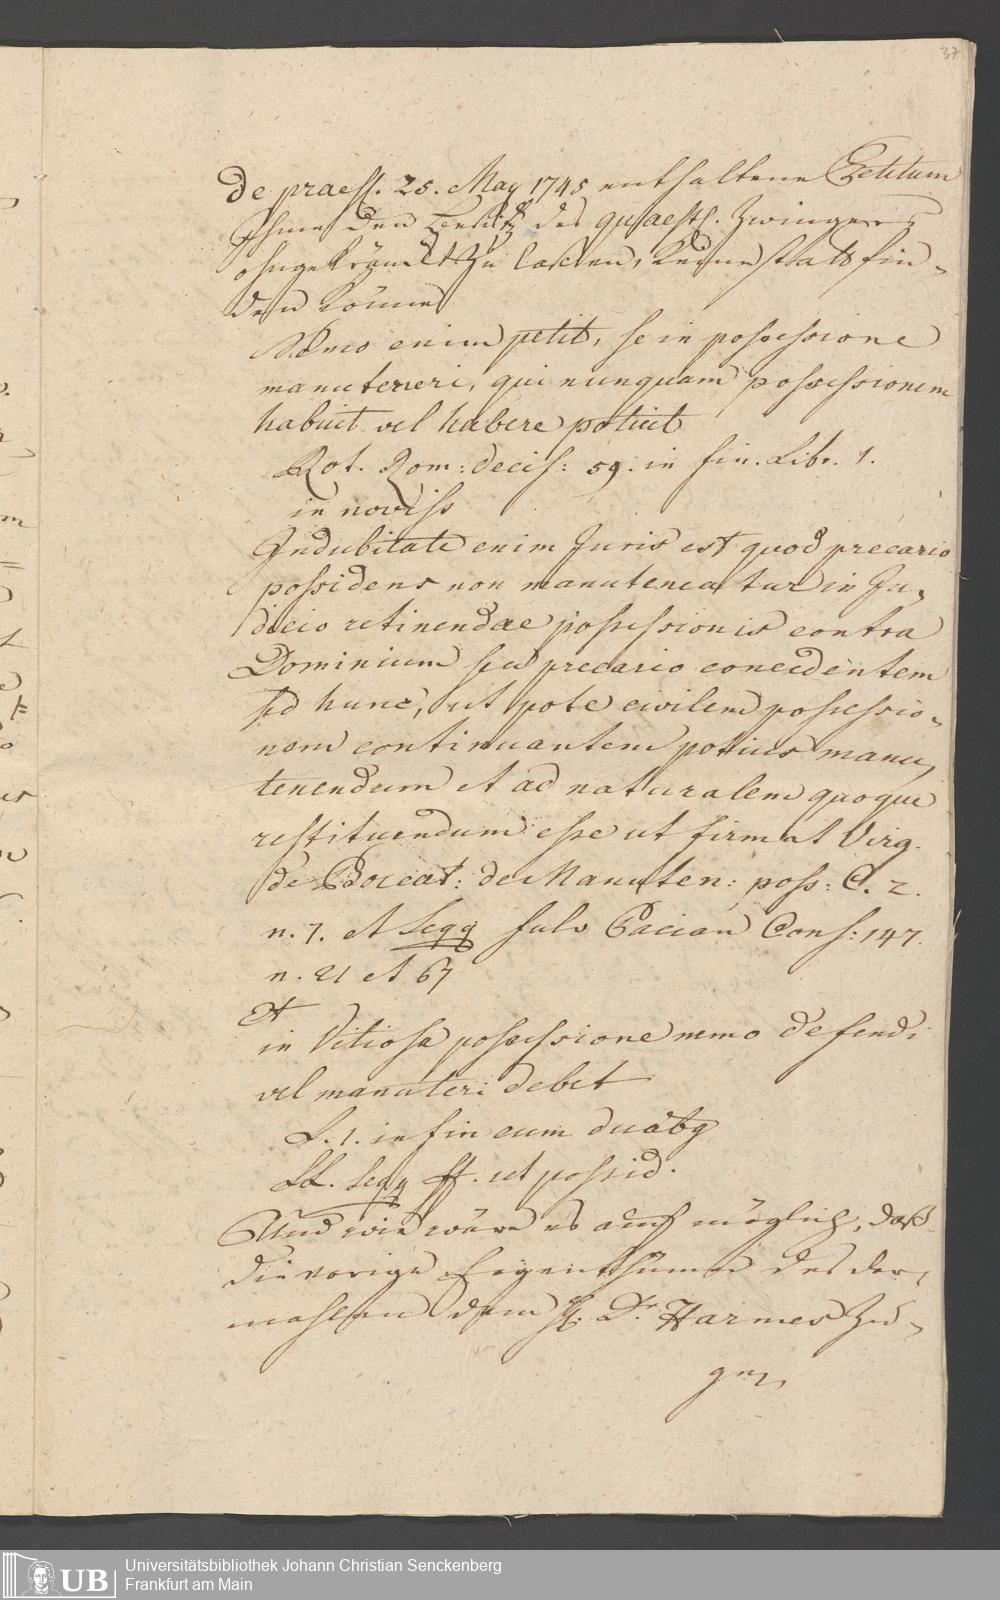 37
de praess. 25. May 1745 enthaltene Petitum
Ihme den Besitz des quaest. Zwingers
ohngekränckt zu lassen, keine statt fin-
den könne
Nemo enim petit, se in possessione
manuteneri, qui nunquam possessionem
habuit vel habere potuit
Rot. Rom: decis: 59. in fin. Libr. 1.
in noviss
Indubitate enim Juris est quod precario
possidens non manuteneatur in Ju-
dicio retinendae possessionis contra
Dominium seu precario concedentem
sed hunc, ut pote civilem possessio-
nem continuantem potius manu-
tenendum et ad naturalem quoque
restituendum esse ut firmat Virg.
de Boccat: de Manuten: poss: C. 2.
n. 7. et seqq Pacian Cons: 147.
n. 21 et 67
Et
in Vitiosa possessione nemo defendi
vel manuteri debet
L. 1. in fin cum duabq
LL. seqq ff. ut possid.
Und wie wäre es auch möglich, daß
die vorige Eigenthümer des der-
mahlen dem H. Dr. Harmes zu-
ge-
Universitätsbibliothek Johann Christian Senckenberg
Frankfurt am Main
UB